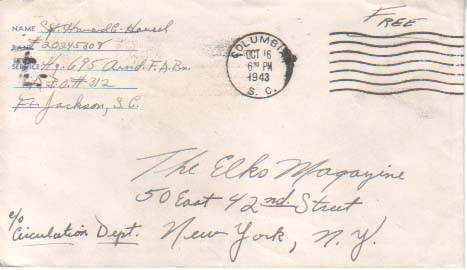 NAME Sgt. Howard C. Hansel
RANK 20245308
SERVICE Hq. 695 Armd. F.A. Bn.
A.P.O. #312
Ft. Jackson, S.C.
COLUMBIA
OCT 16
6 PM
1943
S. C.
FREE
The Elks Magazine
50 East 42nd. Street
New York, N.Y.
c/o
Circulation Dept.